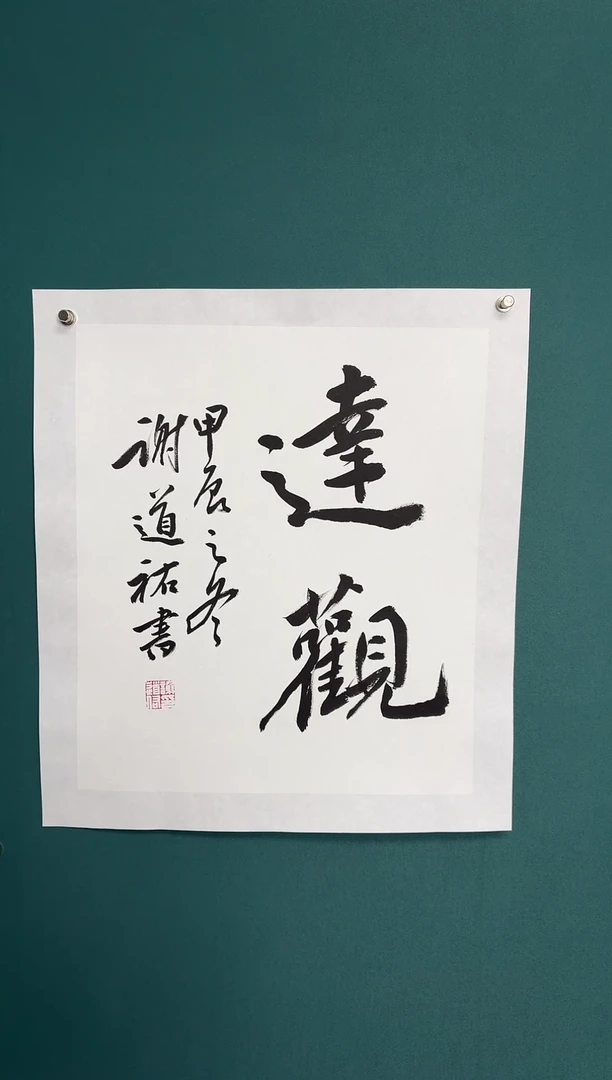 達觀
甲辰之冬
謝道祐書